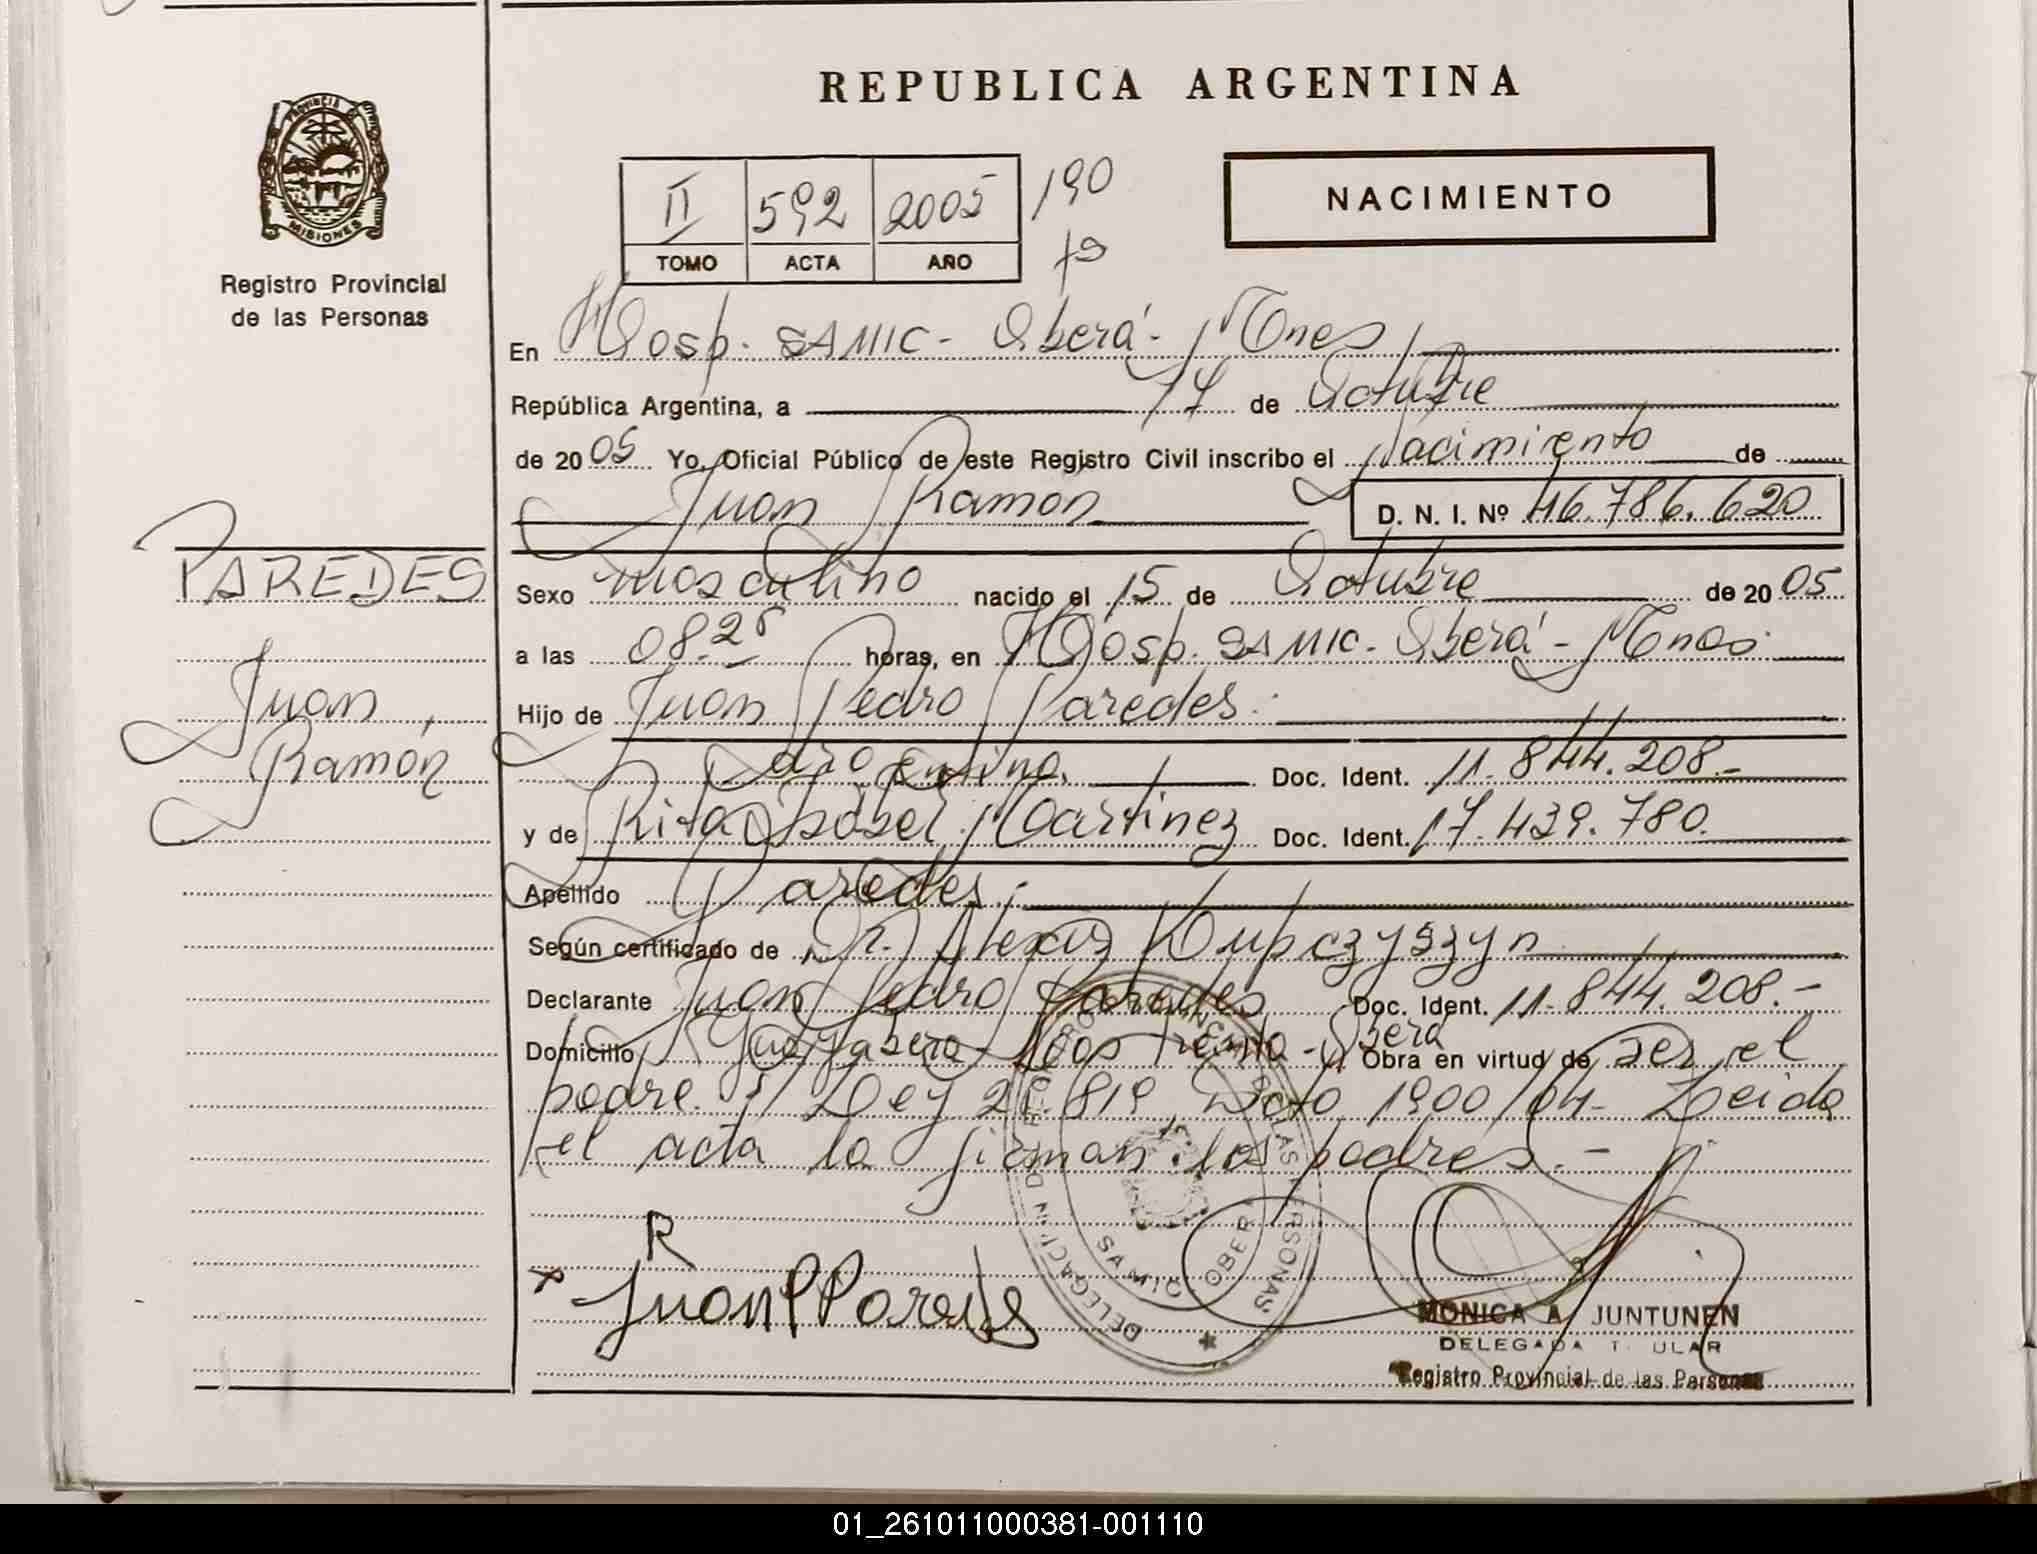 REPUBLICA ARGENTINA
PROVINCIA DE
MISIONES
Registro Provincial
de las Personas
II 592 2005 190
TOMO ACTA AÑO fs
NACIMIENTO
En Hosp. SAMIC - Oberá - Mnes
República Argentina, a 17 de Octubre
de 2005 Yo, Oficial Público de este Registro Civil inscribo el Nacimiento de
Juan Ramón D. N. I. Nº 46.786.620
PAREDES
Juan
Ramón
Sexo masculino nacido el 15 de Octubre de 2005
a las 08.25 horas, en Hosp. SAMIC - Oberá - Mnes
Hijo de Juan Pedro Paredes
Argentina Doc. Ident. 11.844.208.-
y de Rita Isabel Martinez Doc. Ident. 17.439.780.
Apellido Paredes
Según certificado de Dr. Alexis Kupczyszyn
Declarante Juan Pedro Paredes Doc. Ident. 11.844.208.-
Domicilio Oberá Obra en virtud de ser el
padre. Ley 26.819 Dcto 1900/04 - Leida
el acta la firman los padres.-
R
x Juan P Paredes
DELEGACIÓN
SAMIC OBERA
MONICA A. JUNTUNEN
DELEGADA TITULAR
Registro Provincial de las Personas
01_261011000381-001110